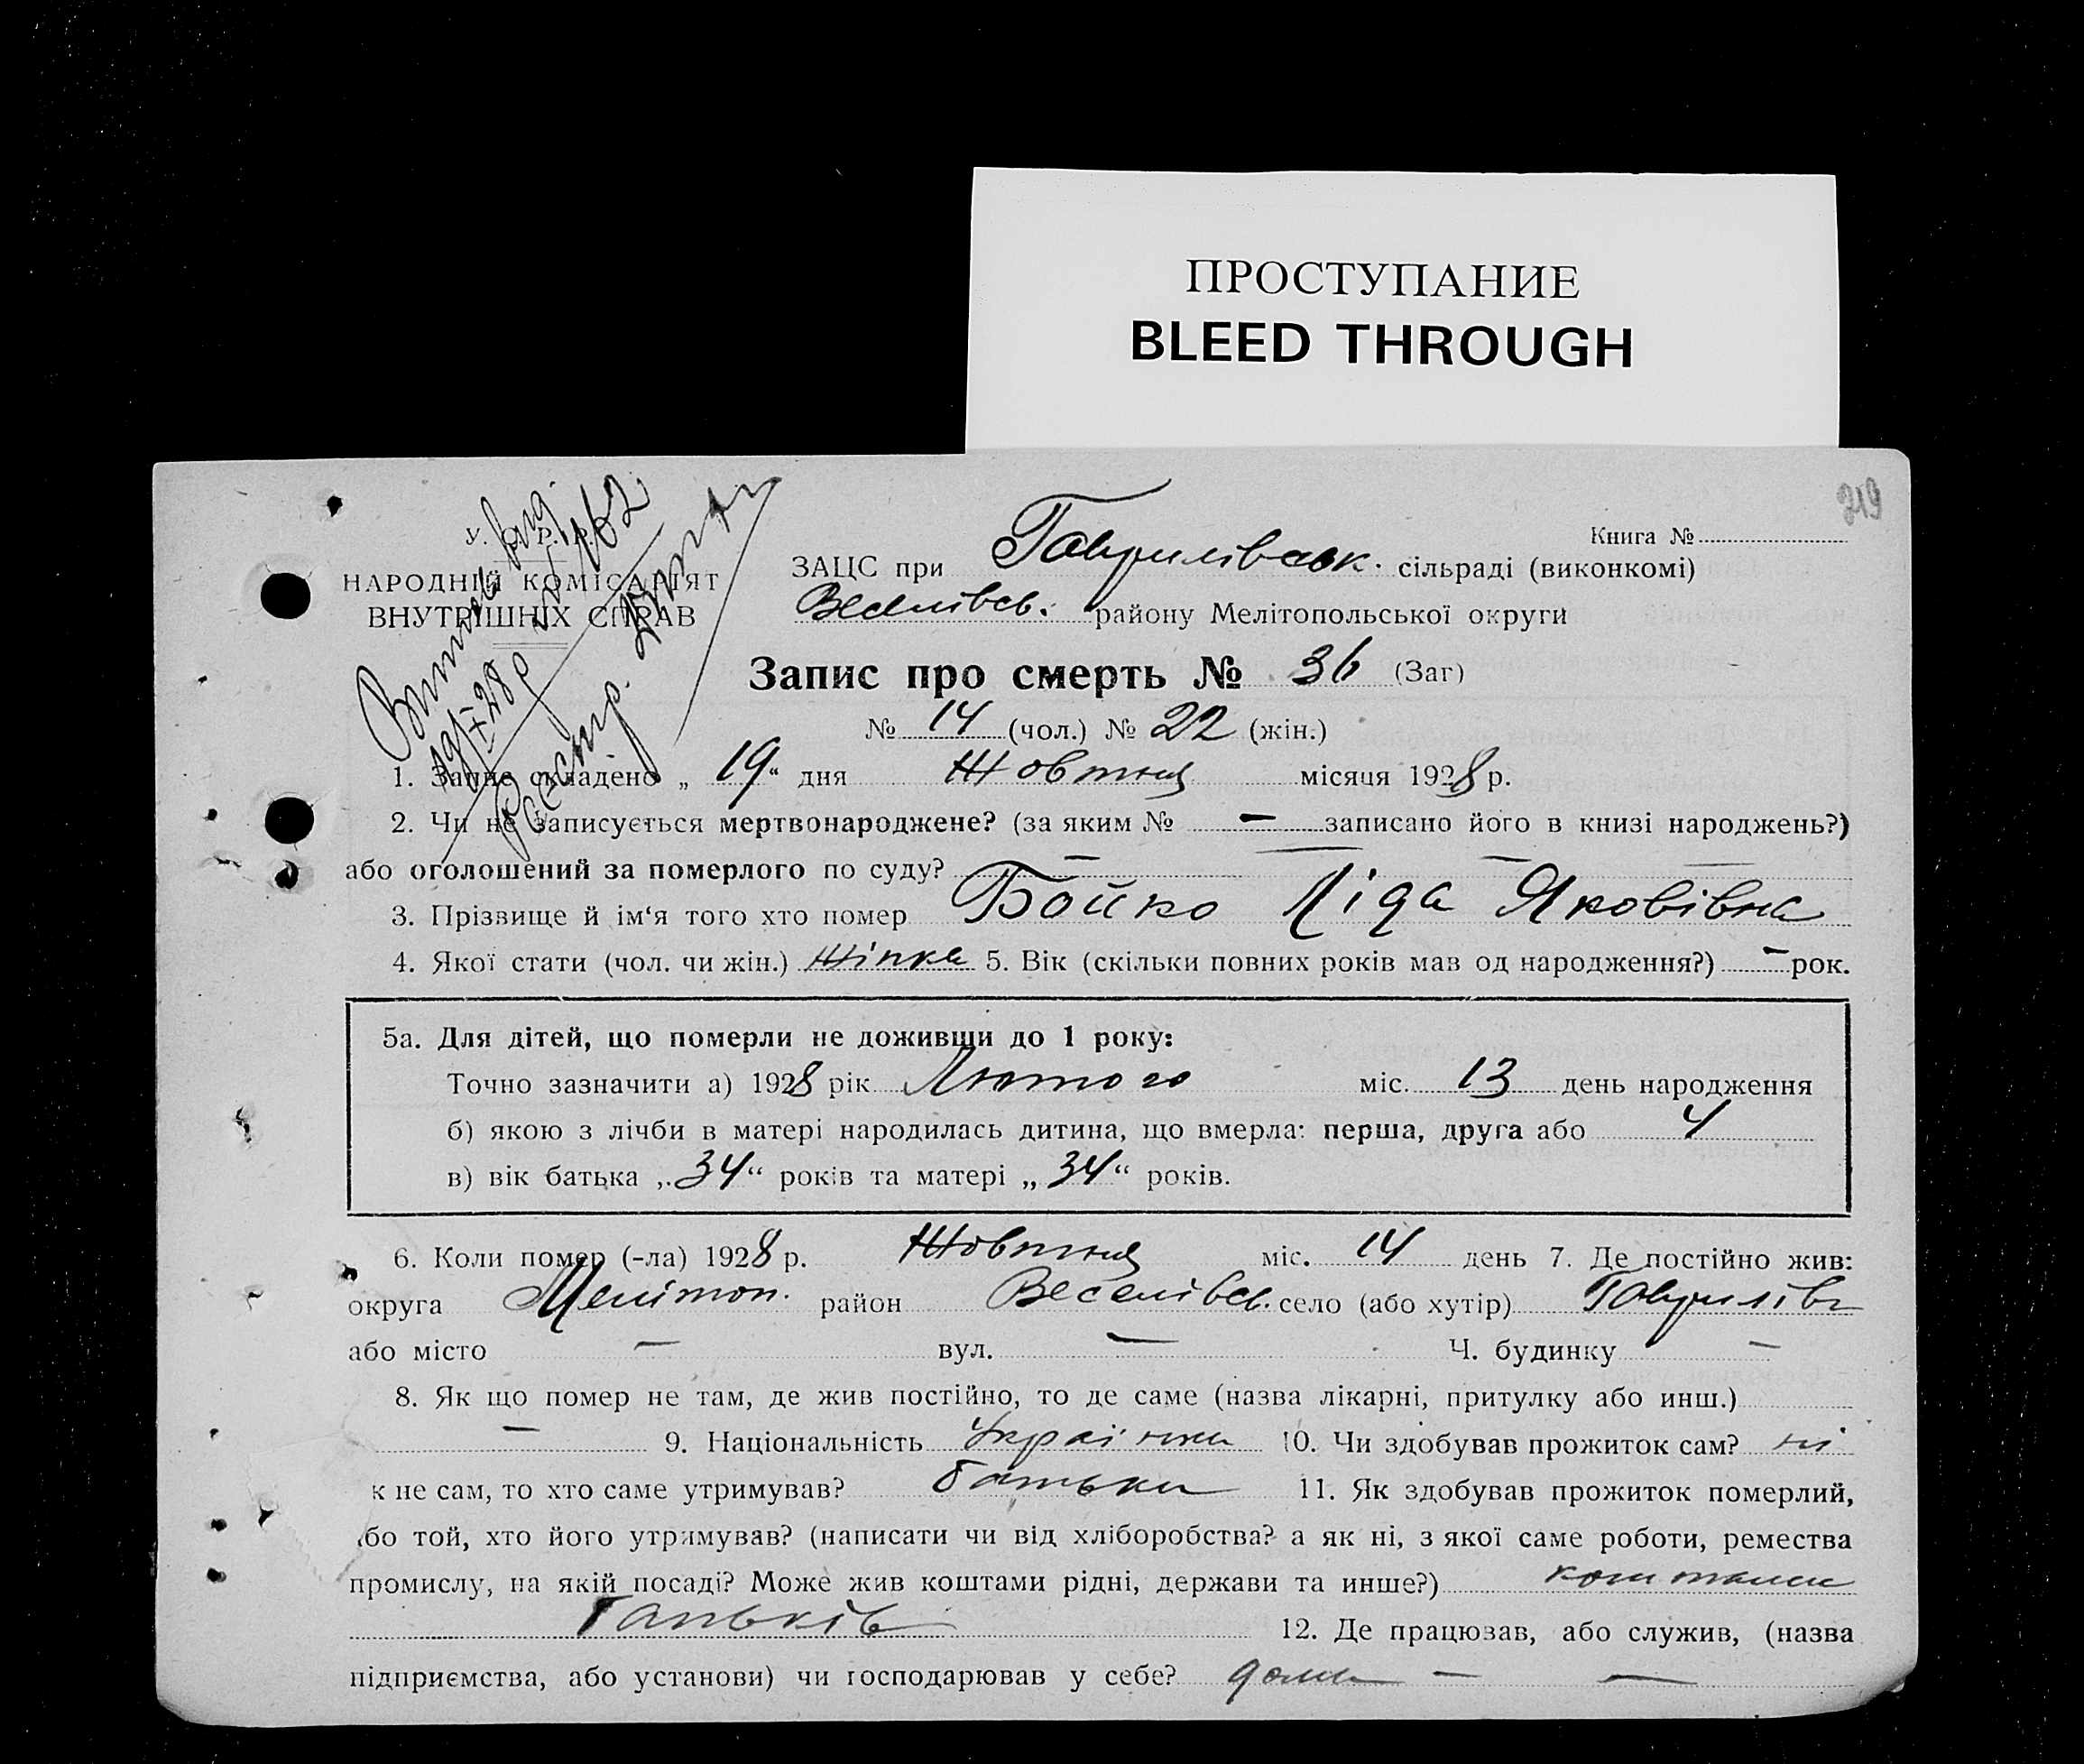 ПРОСТУПАНИЕ
BLEED THROUGH
319
У. С. Р. Р.
НАРОДНІЙ КОМІСАРІЯТ
ВНУТРІШНІХ СПРАВ
Книга №
ЗАЦС при Гаврилівськ. сільраді (виконкомі)
Веселівсь. району Мелітопольської округи
Запис про смерть № 36 (Заг)
№ 14 (чол.) № 22 (жін.)
1. Запис складено „ 19 “ дня Жовтня місяця 1928 р.
2. Чи не записується мертвонароджене? (за яким № — записано його в книзі народжень?)
або оголошений за померлого по суду? —
3. Прізвище й ім‘я того хто помер Бойко Ліда Яковівна
4. Якої стати (чол. чи жін.) Жінка 5. Вік (скільки повних років мав од народження?) — рок.
5а. Для дітей, що померли не доживши до 1 року:
Точно зазначити а) 1928 рік Лютого міс. 13 день народження
б) якою з лічби в матері народилась дитина, що вмерла: перша, друга або 4
в) вік батька „ 34 “ років та матері „ 34 “ років.
6. Коли помер (-ла) 1928 р. Жовтня міс. 14 день 7. Де постійно жив:
округа Мелітоп. район Веселівсь. село (або хутір) Гаврилів
або місто — вул. — Ч. будинку —
8. Як що помер не там, де жив постійно, то де саме (назва лікарні, притулку або инш.)
— 9. Національність Українка 10. Чи здобував прожиток сам? ні
к не сам, то хто саме утримував? батьки 11. Як здобував прожиток померлий,
бо той, хто його утримував? (написати чи від хліборобства? а як ні, з якої саме роботи, ремества
промислу, на якій посаді? Може жив коштами рідні, держави та инше?) коштами
батьків 12. Де працював, або служив, (назва
підприємства, або установи) чи господарював у себе? дома — —